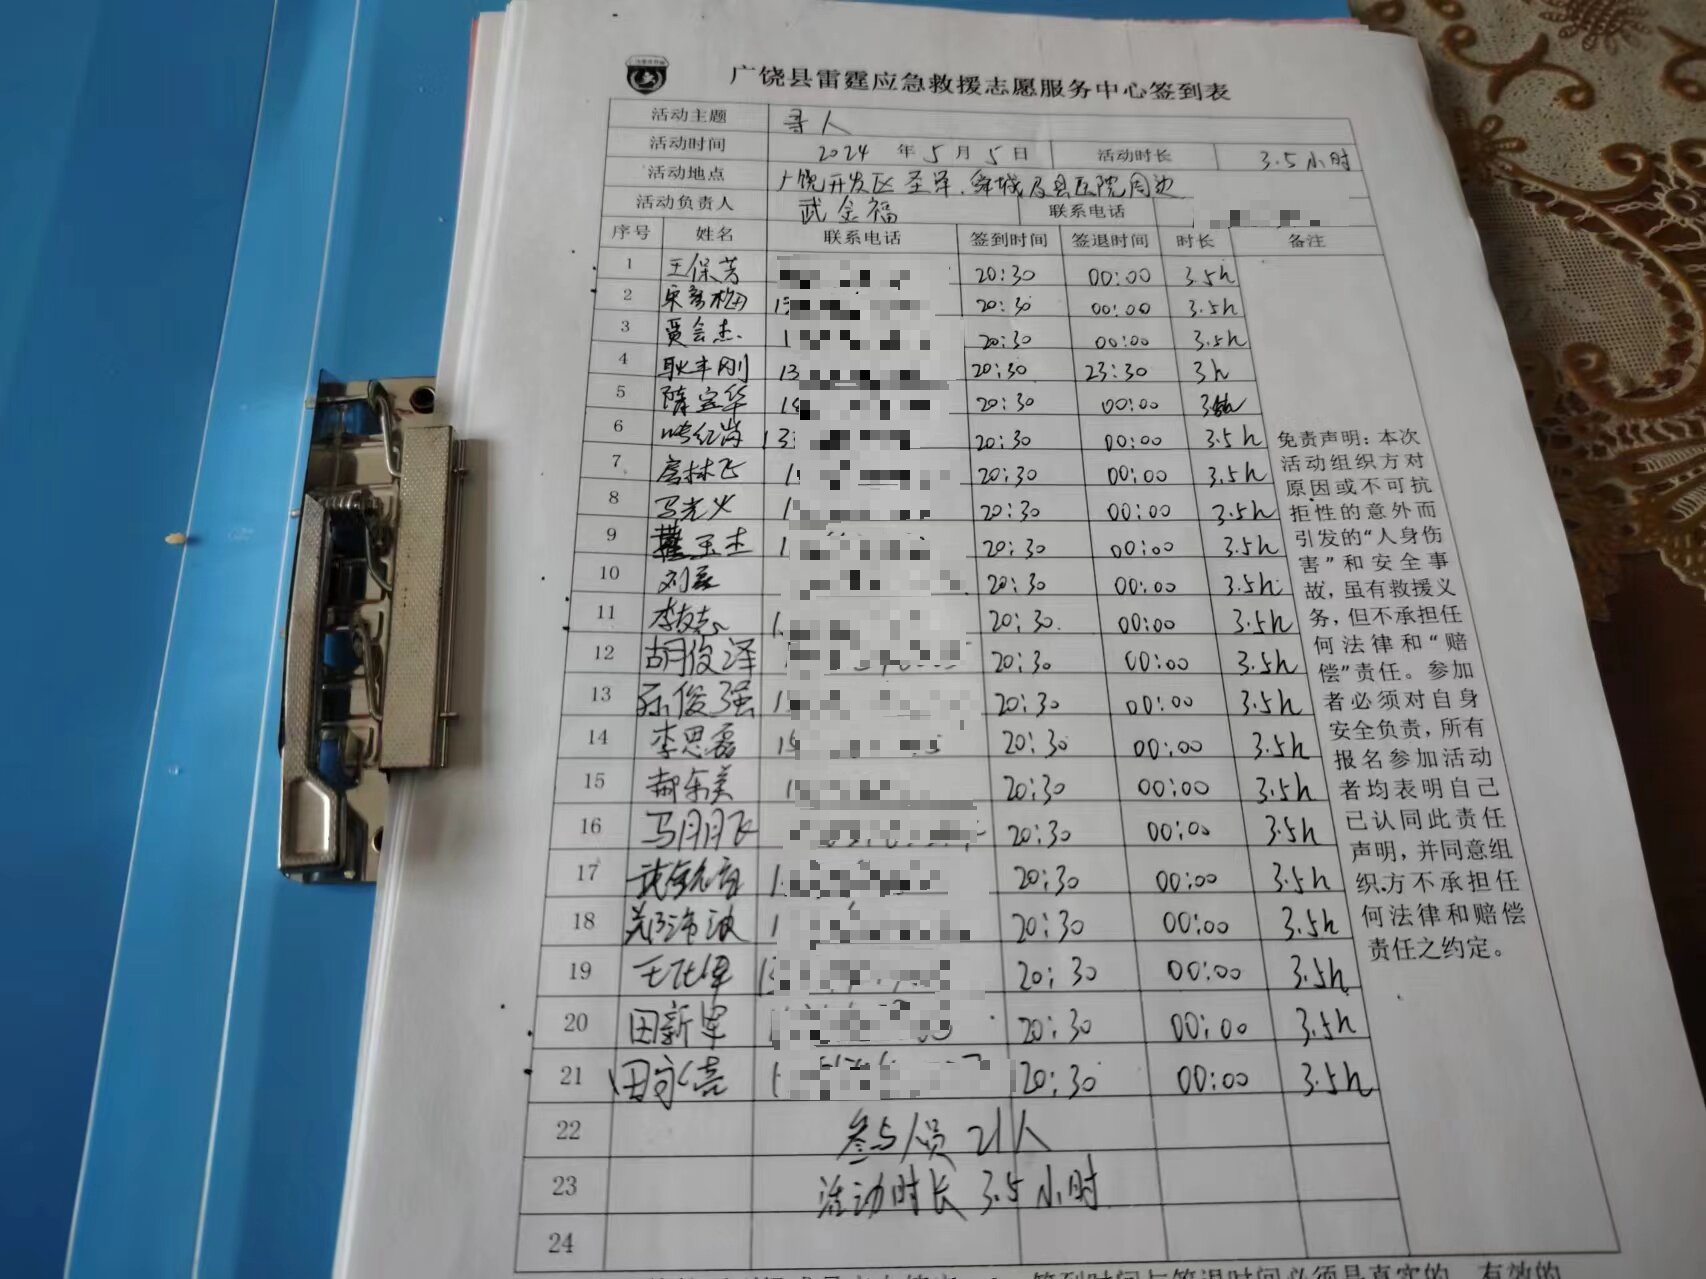 广饶县雷霆应急救援志愿服务中心签到表
活动主题 寻人
活动时间 2024 年 5 月 5 日 活动时长 3.5小时
活动地点 广饶开发区圣泽、舜城及县医院周边
活动负责人 武金福 联系电话
序号 姓名 联系电话 签到时间 签退时间 时长 备注
1 王保芳 20:30 00:00 3.5h
2 20:30 00:00 3.5h
3 贾会杰 20:30 00:00 3.5h
4 耿丰刚 13 20:30 23:30 3h
5 隋宝华 20:30 00:00
6 13 20:30 00:00 3.5h
7 房林飞 20:30 00:00 3.5h
8 马光义 20:30 00:00 3.5h
9 玉杰 20:30 00:00 3.5h
10 刘磊 20:30 00:00 3.5h
11 李友志 20:30 00:00 3.5h
12 胡俊泽 20:30 00:00 3.5h
13 孙俊强 20:30 00:00 3.5h
14 李思磊 20:30 00:00 3.5h
15 郝东美 20:30 00:00 3.5h
16 马月月飞 20:30 00:00 3.5h
17 20:30 00:00 3.5h
18 20:30 00:00 3.5h
19 20:30 00:00 3.5h
20 田新军 20:30 00:00 3.5h
21 田永亮 20:30 00:00 3.5h
22 参与人员 21人
23 活动时长 3.5小时
24
免责声明：本次
活动组织方对
原因或不可抗
拒性的意外而
引发的“人身伤
害”和安全事
故，虽有救援义
务，但不承担任
何法律和“赔
偿”责任。参加
者必须对自身
安全负责，所有
报名参加活动
者均表明自己
已认同此责任
声明，并同意组
织方不承担任
何法律和赔偿
责任之约定。
签到时间与签退时间必须是真实的、有效的